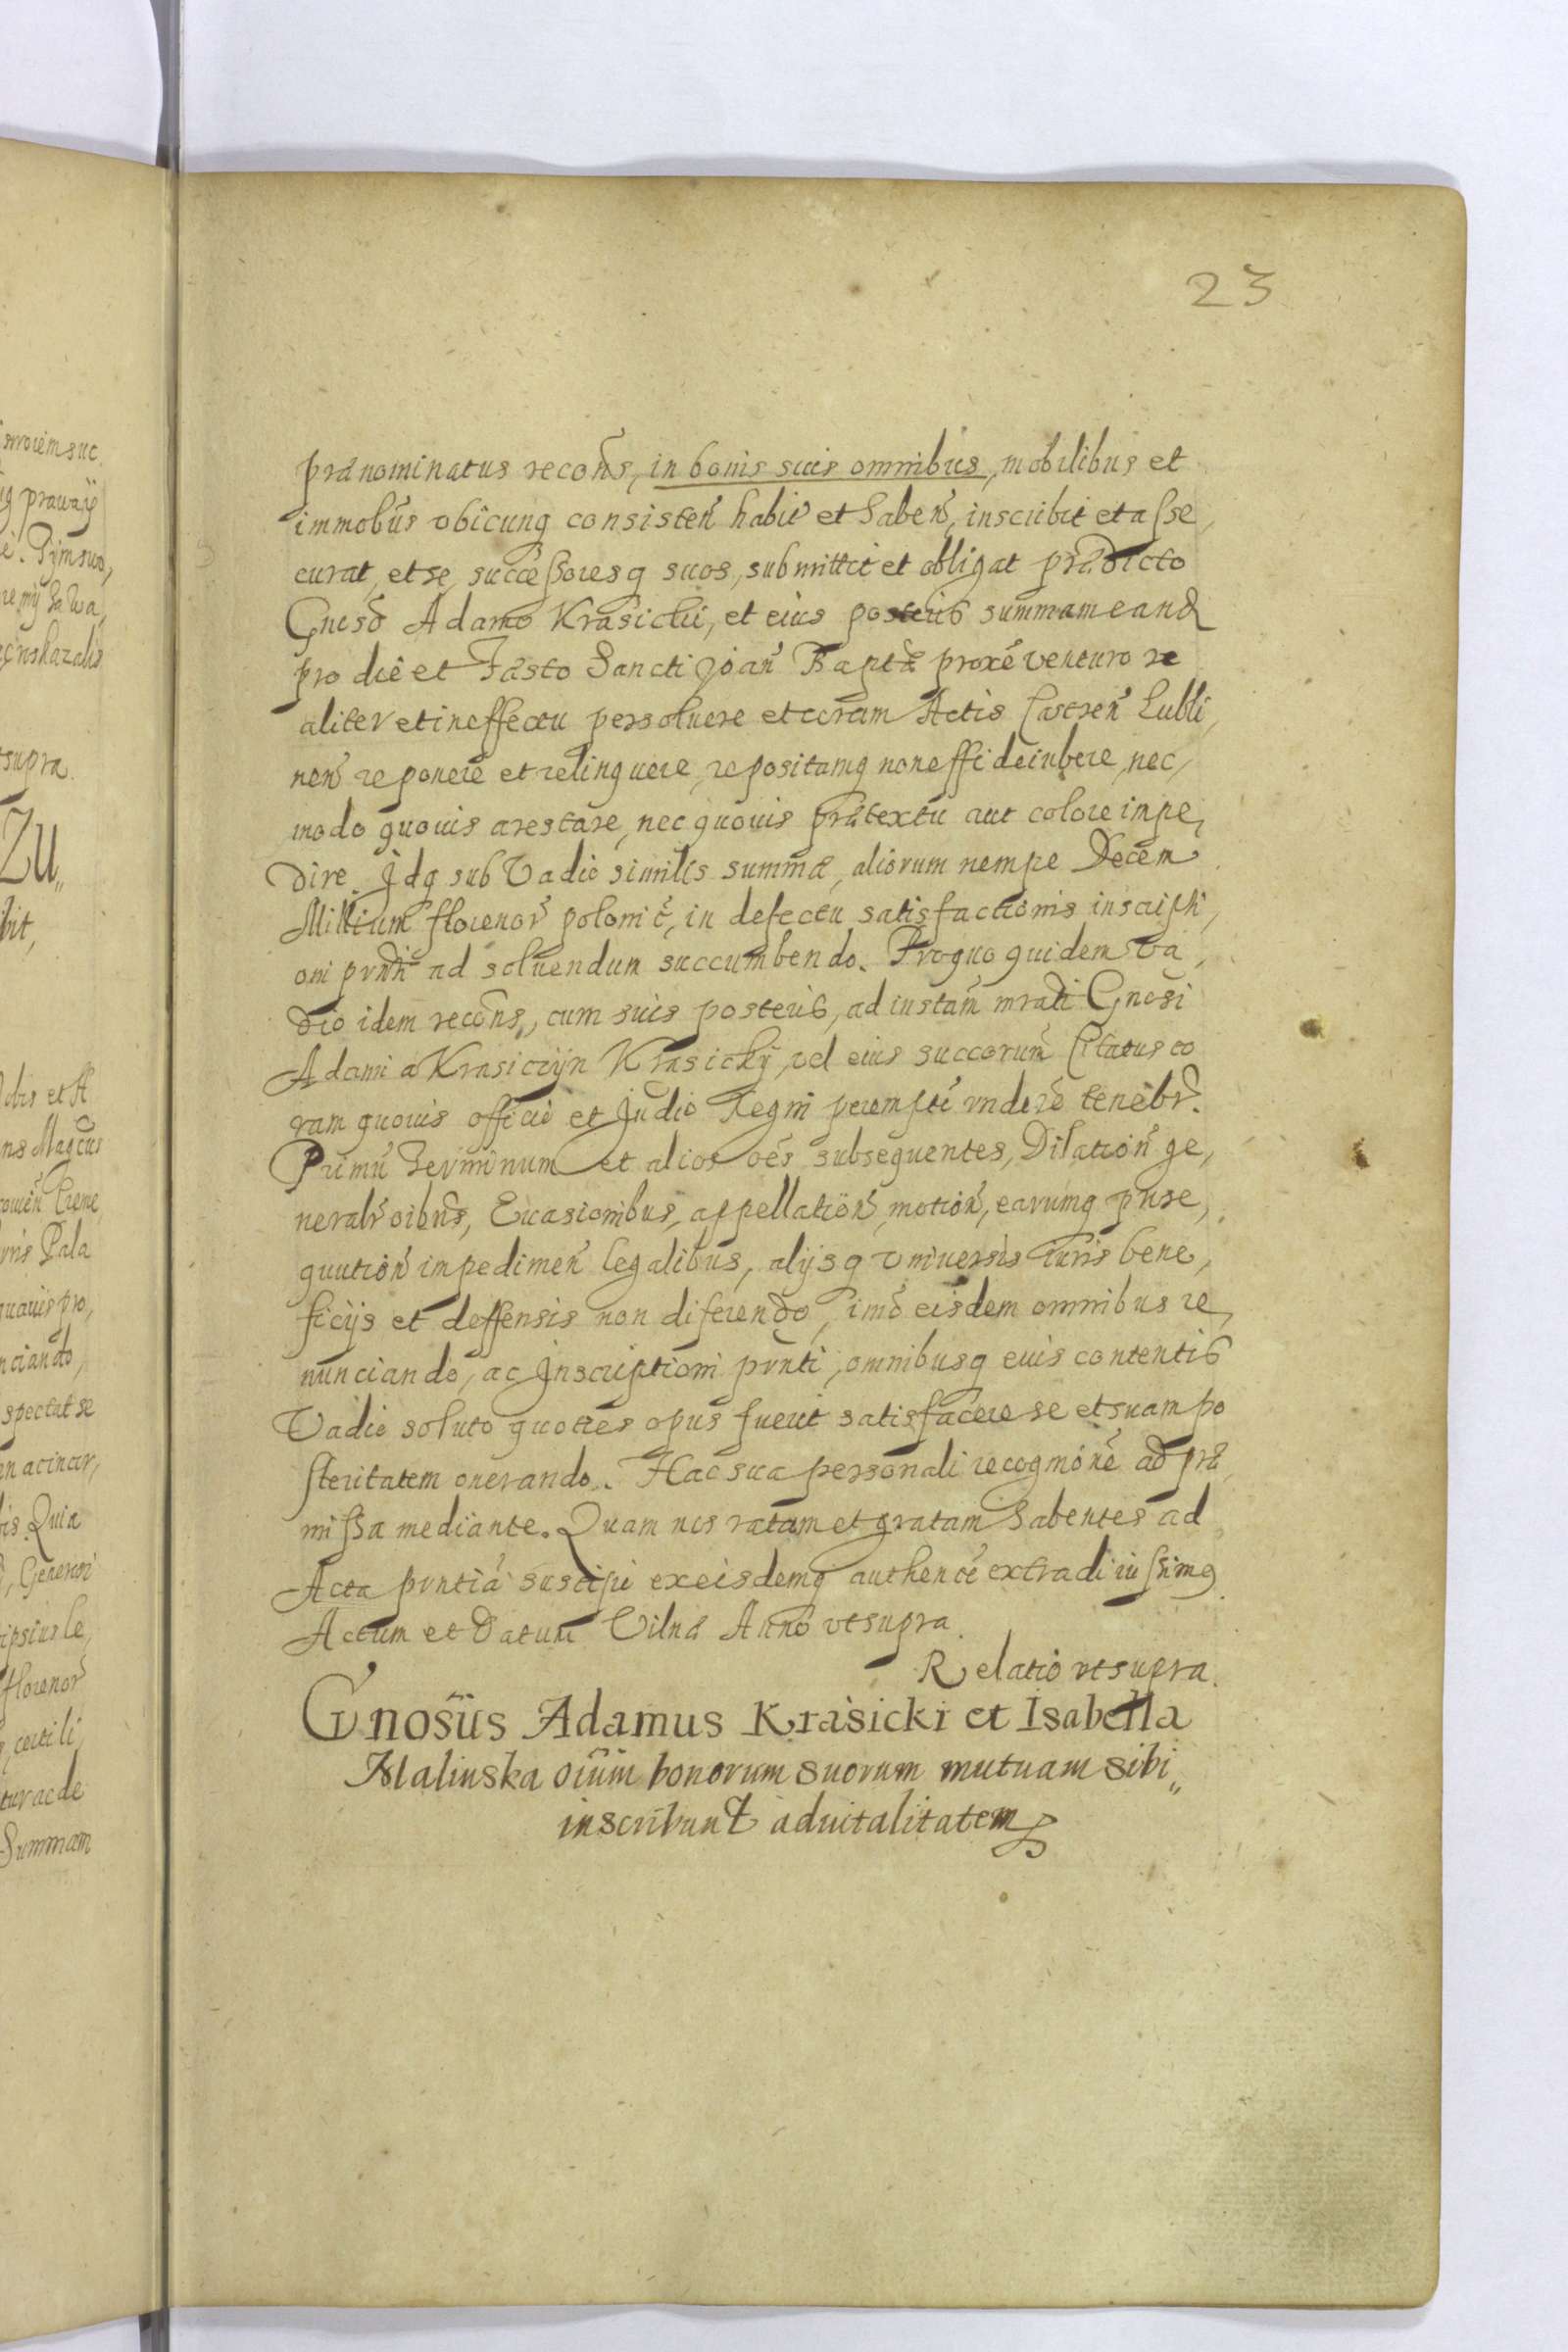 23
prænominatus recoñs, in bonis suis omnibus, mobilibus et
immobũs vbicunq consisteñ habit et habeñ, inscribit et asse,
curat, et se, successoresq suos, submittit et obligat prædicto
Gnosõ Adamo Krasicki, et eius posteris summam eand
pro die et Fæsto Sancti Joañ Baptæ proxe venturo re
aliter et in effectu persoluere et coram Actis Castreñ Lubli,
neñ reponere et relinquere, repositamq non effideiubere, nec,
modo quouis arestare, nec quouis prætextu aut colore impe,
dire. Idq sub Vadio similis summæ, aliorum nempe Decem
Millium florenor polonic, in defectu satisfactionis inscripti,
oni prñti ad soluendum succumbendo. Pro quo quidem va,
dio idem recoñs, cum suis posteris, ad instañ mrati Gnosi
Adami a Krasiczyn Krasicky, vel eius succorum Citatus co
ram quouis officio et Judio Regni perempte rndere tenebr.
Primũ Terminum et alios oes subsequentes, Dilatioñ ge,
neralr oibus, Euasionibus, appellatioñ, motioñ, earumq prose,
quutioñ impedimeñ legalibus, alijsq vniuersis iuris bene,
ficijs et deffensis non diferendo, imo eisdem omnibus re,
nunciando, ac Inscriptioni prnti, omnibusq euis contentis
Vadio soluto quoties opus fuerit satisfacere se et suam po
steritatem onerando. Hac sua personali recognone ad præ
missa mediante. Quam nos ratam et gratam habentes ad
Acta prntia suscipi ex eisdemq authence extradi iussimq
Actum et Datum Vilnæ Anno vt supra.
Relatio vt supra.
Gnosus Adamus Krasicki et Isabella
Malinska oium bonorum suorum mutuam sibi,,
inscribunt aduitalitatem